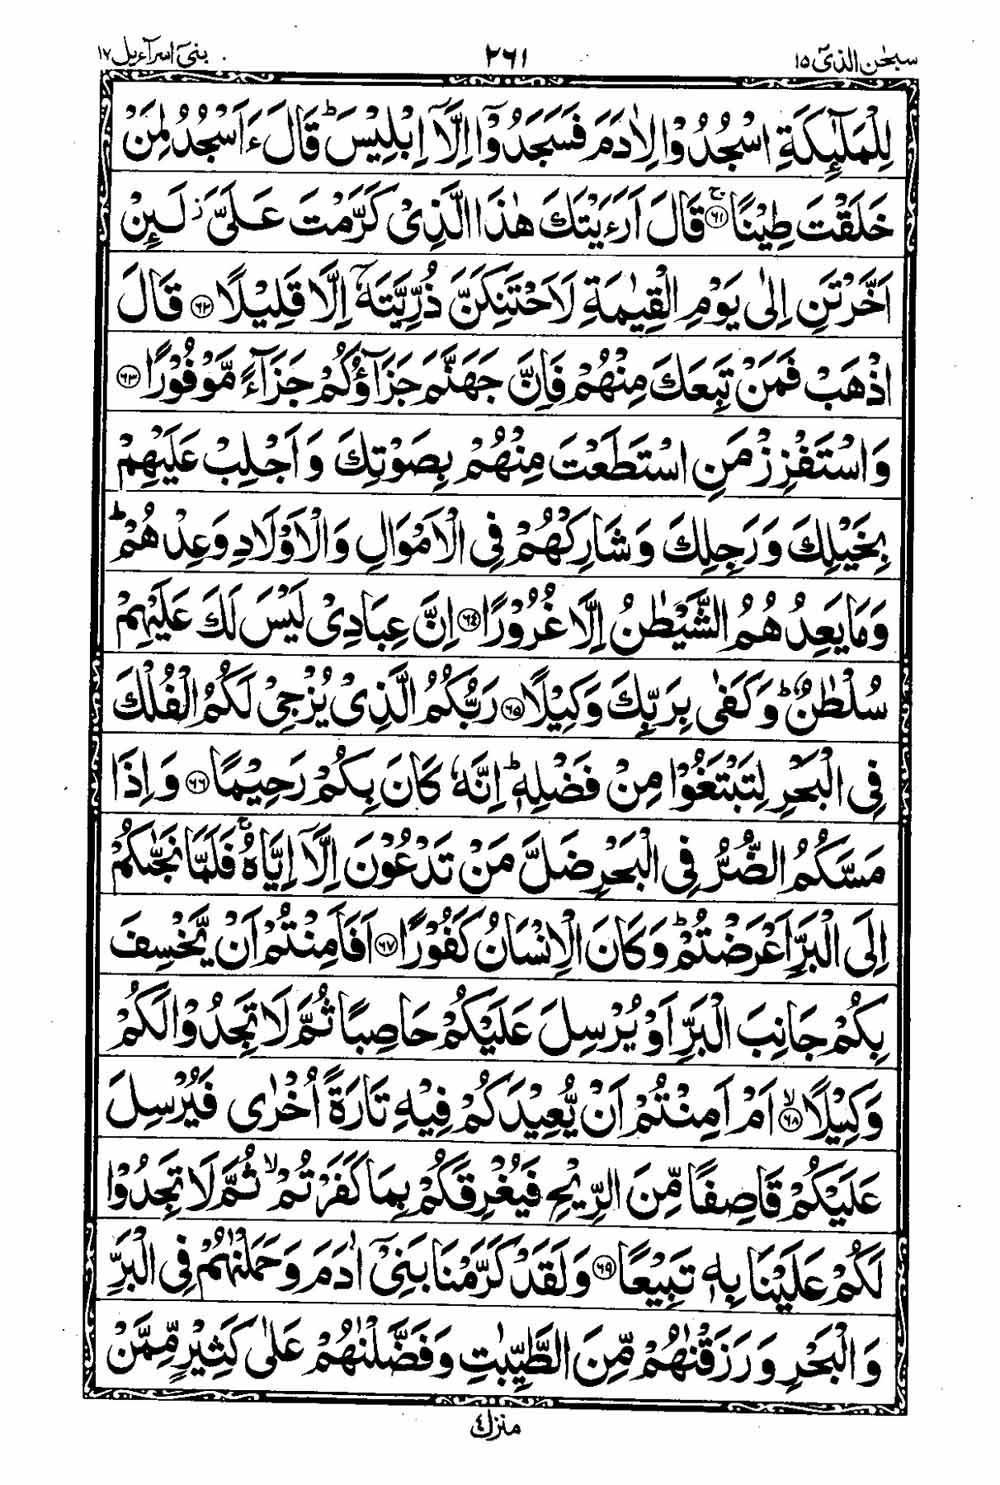 سبحٰن الذیٓ ۱۵ ۲۶۱ بنیٓ اسرآءیل ۱۷
لِلْمَلٰٓئِكَةِ اسْجُدُوْا لِاٰدَمَ فَسَجَدُوْٓا اِلَّآ اِبْلِيْسَ ؕ قَالَ ءَاَسْجُدُ لِمَنْ
خَلَقْتَ طِيْنًا ۚ‏﴿۶۱﴾ قَالَ اَرَءَيْتَكَ هٰذَا الَّذِىْ كَرَّمْتَ عَلَىَّ ز لَئِنْ
اَخَّرْتَنِ اِلٰى يَوْمِ الْقِيٰمَةِ لَاَحْتَنِكَنَّ ذُرِّيَّتَهٗٓ اِلَّا قَلِيْلًا ﴿۶۲﴾ قَالَ
اذْهَبْ فَمَنْ تَبِعَكَ مِنْهُمْ فَاِنَّ جَهَنَّمَ جَزَآؤُكُمْ جَزَآءً مَّوْفُوْرًا ﴿۶۳﴾
وَاسْتَفْزِزْ مَنِ اسْتَطَعْتَ مِنْهُمْ بِصَوْتِكَ وَاَجْلِبْ عَلَيْهِمْ
بِخَيْلِكَ وَرَجِلِكَ وَشَارِكْهُمْ فِى الْاَمْوَالِ وَالْاَوْلَادِ وَعِدْهُمْ ؕ
وَمَا يَعِدُهُمُ الشَّيْطٰنُ اِلَّا غُرُوْرًا ﴿۶۴﴾ اِنَّ عِبَادِىْ لَيْسَ لَكَ عَلَيْهِمْ
سُلْطٰنٌ ؕ وَكَفٰى بِرَبِّكَ وَكِيْلًا ﴿۶۵﴾ رَبُّكُمُ الَّذِىْ يُزْجِىْ لَكُمُ الْفُلْكَ
فِى الْبَحْرِ لِتَبْتَغُوْا مِنْ فَضْلِهٖ ؕ اِنَّهٗ كَانَ بِكُمْ رَحِيْمًا ﴿۶۶﴾ وَاِذَا
مَسَّكُمُ الضُّرُّ فِى الْبَحْرِ ضَلَّ مَنْ تَدْعُوْنَ اِلَّآ اِيَّاهُ ۚ فَلَمَّا نَجّٰىكُمْ
اِلَى الْبَرِّ اَعْرَضْتُمْ ؕ وَكَانَ الْاِنْسَانُ كَفُوْرًا ﴿۶۷﴾ اَفَاَمِنْتُمْ اَنْ يَّخْسِفَ
بِكُمْ جَانِبَ الْبَرِّ اَوْ يُرْسِلَ عَلَيْكُمْ حَاصِبًا ثُمَّ لَا تَجِدُوْا لَكُمْ
وَكِيْلًا ۙ﴿۶۸﴾ اَمْ اَمِنْتُمْ اَنْ يُّعِيْدَكُمْ فِيْهِ تَارَةً اُخْرٰى فَيُرْسِلَ
عَلَيْكُمْ قَاصِفًا مِّنَ الرِّيْحِ فَيُغْرِقَكُمْ بِمَا كَفَرْتُمْ ۙ ثُمَّ لَا تَجِدُوْا
لَكُمْ عَلَيْنَا بِهٖ تَبِيْعًا ﴿۶۹﴾ وَلَقَدْ كَرَّمْنَا بَنِىْٓ اٰدَمَ وَحَمَلْنٰهُمْ فِى الْبَرِّ
وَالْبَحْرِ وَرَزَقْنٰهُمْ مِّنَ الطَّيِّبٰتِ وَفَضَّلْنٰهُمْ عَلٰى كَثِيْرٍ مِّمَّنْ
منزل ۴